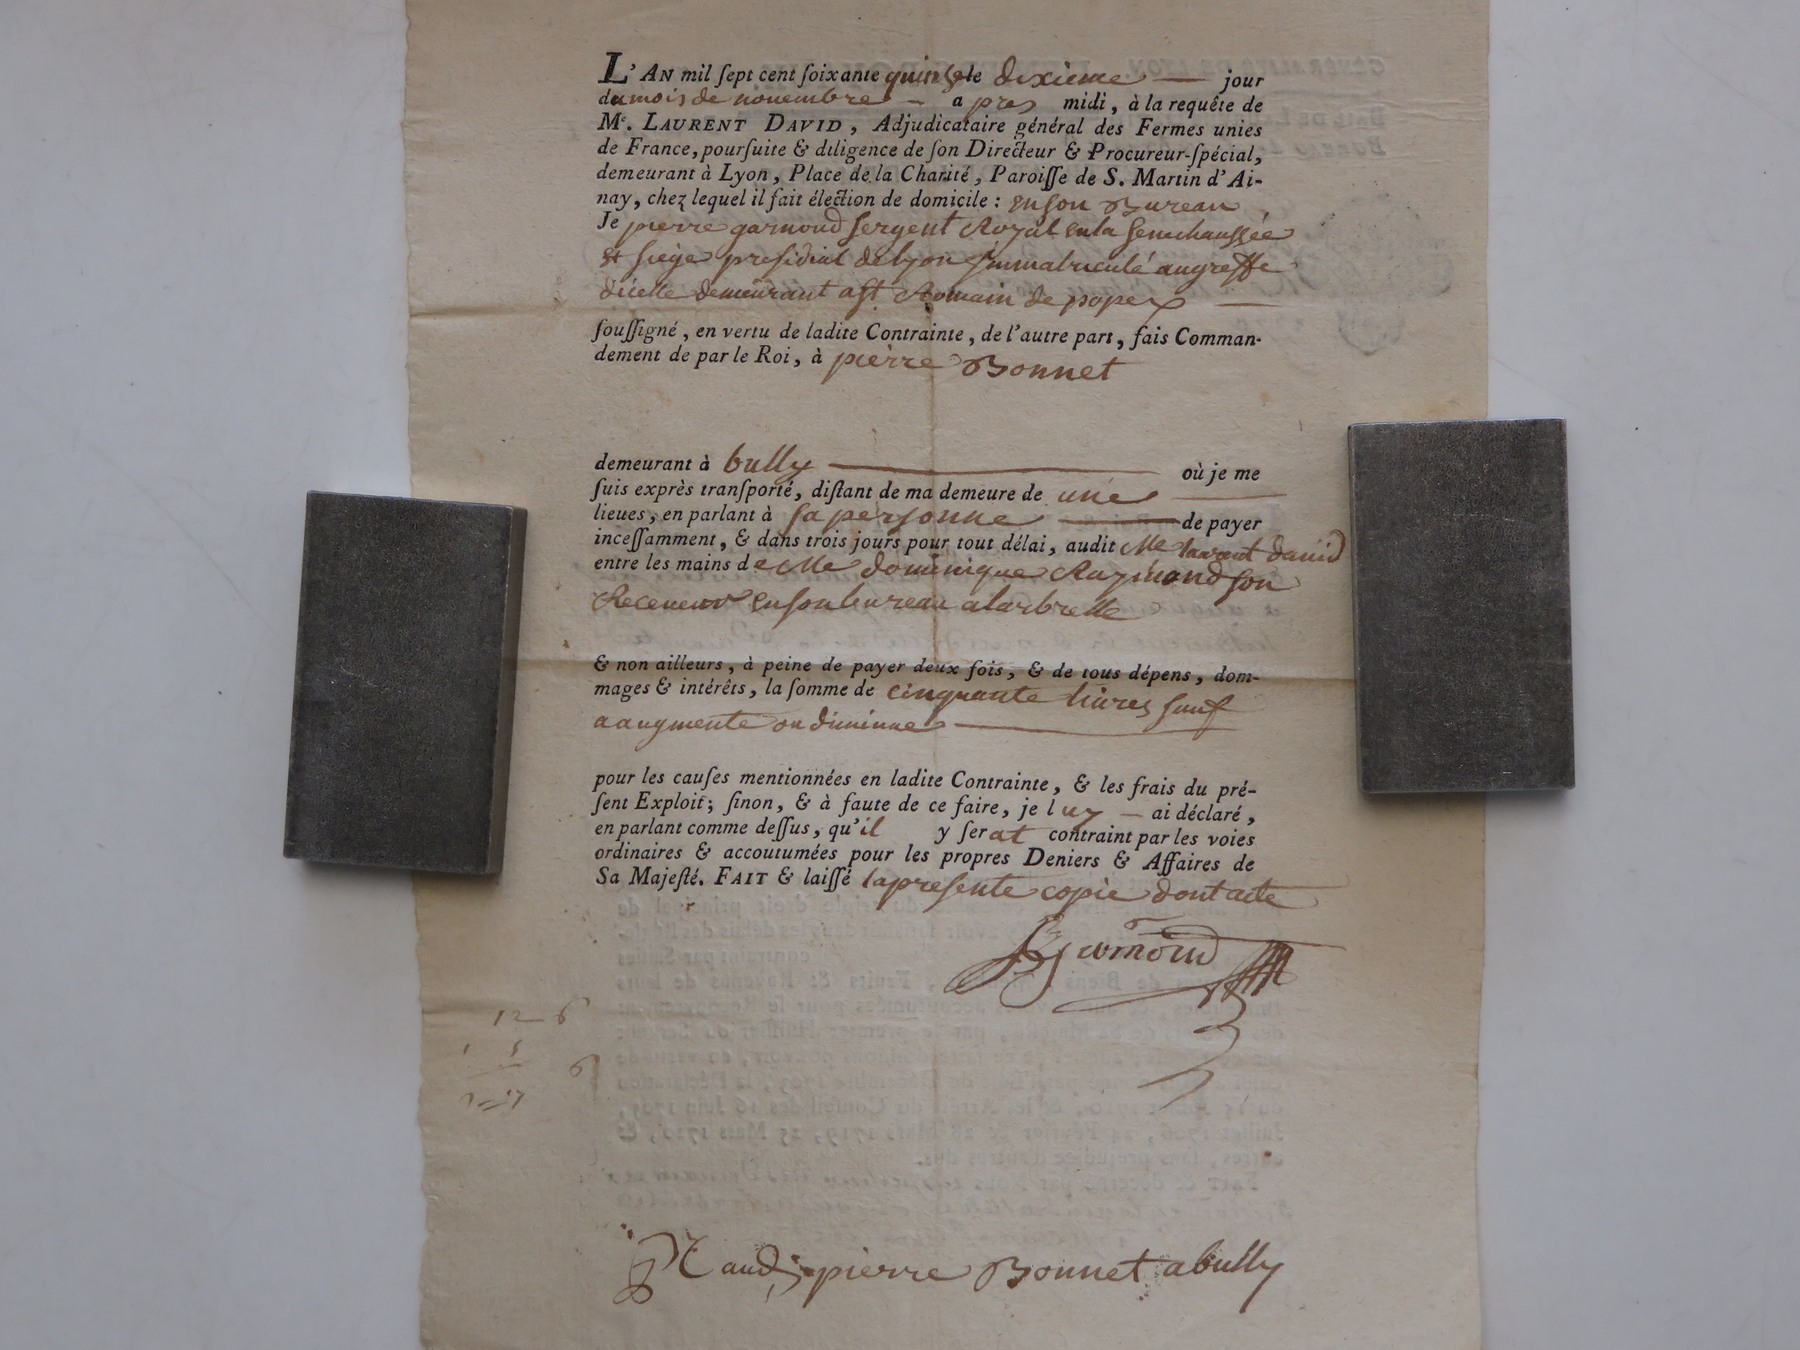 L'AN mil ſept cent ſoixante quinze le dixieme jour
du mois de novembre apres midi, à la requête de
Me. LAURENT DAVID, Adjudicataire général des Fermes unies
de France, pourſuite & diligence de ſon Directeur & Procureur-ſpécial,
demeurant à Lyon, Place de la Charité, Paroiſſe de S. Martin d'Ai-
nay, chez lequel il fait élection de domicile : en son Bureau
Je pierre garnoud sergent Royal en la senechaussée
et siege presidial de lyon immatriculé au greffe
dicelle demeurant a st Romain de popex
ſouſſigné, en vertu de ladite Contrainte, de l'autre part, fais Comman-
dement de par le Roi, à pierre Bonnet
demeurant à bully où je me
ſuis exprès tranſporté, diſtant de ma demeure de une
lieues, en parlant à sa personne de payer
inceſſamment, & dans trois jours pour tout délai, audit Me laurent david
entre les mains de Me dominique Raymond son
Receveur en son bureau a larbrelle
& non ailleurs, à peine de payer deux fois, & de tous dépens, dom-
mages & intérêts, la ſomme de cinquante livres sauf
a augmente ou diminue
pour les cauſes mentionnées en ladite Contrainte, & les frais du pré-
ſent Exploit; ſinon, & à faute de ce faire, je luy ai déclaré,
en parlant comme deſſus, qu'il y ſerat contraint par les voies
ordinaires & accoutumées pour les propres Deniers & Affaires de
Sa Majeſté. FAIT & laiſſé la presente copie dont acte
garnoud
12 6
6
pierre Bonnet a bully